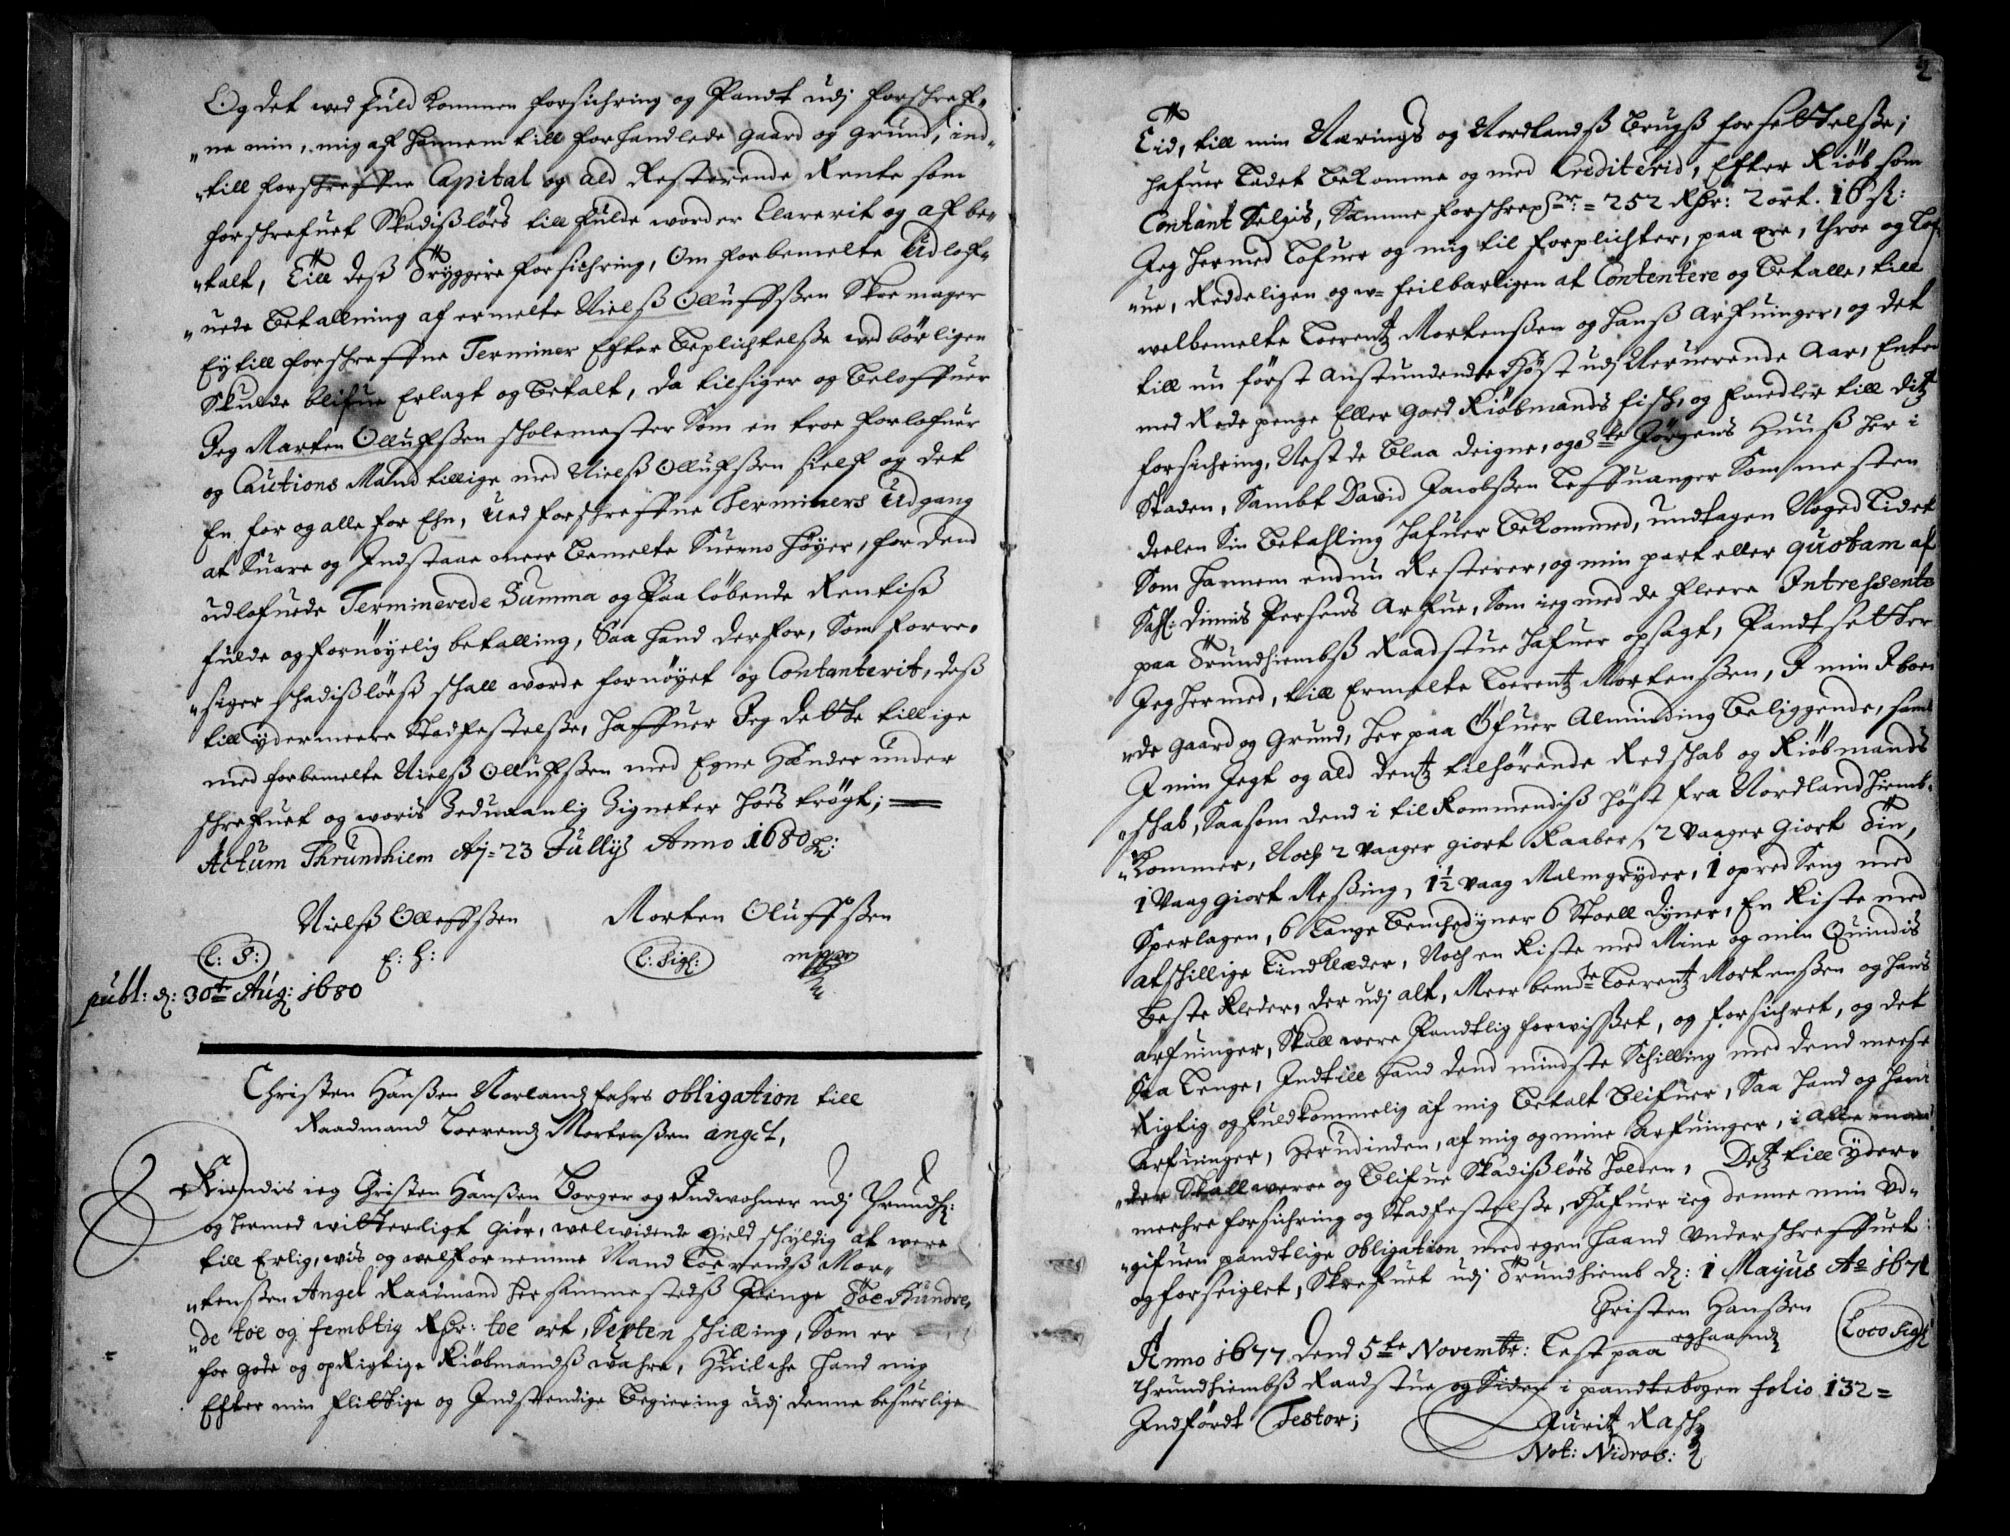 Og det ved fuld kommen forsichring og Pandt udj forschref„
„ne min, mig af hannem till forhandlede gaard og grund, ind„
„till forschreffne Capital og ald Resterende Rente som
forschrefuet Skadisløes till fulde worder Clarerit og af be„
„talt, Till deß Tryggere forsichring, Om forbemelte Udlof„
„uede Betallning af ermelte Nielß Olluffßen Skoemager
Ey till forschreffne Terminer Efter Beplichtelße ved børligen
Skulde blifue Erlagt og Betalt, da tilsiger og Beloffuer
Jeg Marten Olluffßen scholemester Som en troe forlofuer
og Cautions Mand tillige med Nielß Olluffßen sielf og det
En for og alle for Ehn, Ued forschreffne Terminers Udgang
at Suare og Indstaae meer Bemelte Suerno Høyer, for dend
udlofuede Terminerede Summa og Paa løbende Rentiß
fulde og fornøyelig betalling, Saa hand derfor, Som forre„
„siger schadisløeß schall worde fornøyet og Contanterit, deß
till ydermeere Stadfestelße, haffuer Jeg dette tillige
med forbemelte Nielß Olluffßen med Egne Hænder under
schrefuet og woris Seduanlig Zigneter hoes trøgt;
Actum Thrundhiem Aj= 23 Jullij Anno 1680
Nielß Olleffßen Morten Oluffßen
L: S: E: H: L: Sigl: mppr
publ: d: 30te Aug: 1680
Christen Hanßen Norlandfahrs obligation till
Raadmand Loerendz Mortenßen anget,
Kiendis ieg Christen Hanßen Borger og Indwohner udj Trundh:
og hermed witterligt giør, welwidende gield schyldig at were
till Erlig, wiis og welfornemme Mand Loerendß Mor„
„tenßen Angel Raadmand her sammestedß Penge Toe Hundre„
„de toe og fembtig Rdr: toe ort, Sexten schilling, Som er
for gode og oprigtige Kiøbmandß wahre, Huilche hand mig
Efter min flittige og Indstendige Begiering udj denne besuerlige
2
Tid, till min Nærings og Nordlandß Brugß forsettelße;
hafuer ladet bekomme og med Crediterid, Efter Kiøb som
Contant Selgis, Samme forschrefne = 252 Rdr: 2 ort. 16 ß:
Jeg hermed Lofuer og mig til forplichter, paa ære, throe og Lof„
„ue, Reddeligen og w= feilbarligen at Contentere og betalle, till
welbemelte Loerentz Mortenßen og hanß arfuinger, og det
till nu først anstundende Høst udj Neruerende Aar, Enten
med Rede penge Eller goed Kiøbmands fisch, og Emidler till ditz
forsichring, Nest de Blaa deigne, og Ste Jørgens Huuß her i
Staden, Sambt David Jacobßen Leffuanger Som mesten
deelen Sin betahling hafuer bekommed, undtagen Noged Lidet
Som hannem endnu Resterer, og min part eller quotam af
Sahl: Dinnis Persens Arfue, Som ieg med de fleere Intressente
paa Trundhiembß Raadstue hafuer opsagt, Pandtsetter
Jeg hermed, till Ermelte Loerentz Mortenßen, I min Iboen
„de gaard og Grund, her paa Øfuer Alminding beliggende, samt
I min Jegt og ald dentz tilhørende Redschab og Kiøbmands
„schab, Saasom dend i tilkommendiß Høst fra Nordland hiemb„
„kommer, Noch 2 Vaager giort Kaaber, 2 Vaager Giort Tin,
1 Vaag giort Meßing, 1½ Vaag Malmgryder, 1 opred Seng med
Sperlagen, 6 Lange Benchedyner 6 Stoell dyner, En Kiste med
atschillige Lindklæder, Noch en Kiste med Mine og min Quindis
Beste Kleder, der udj alt, Meer bemte Loerentz Mortenßen og hans
arfuinger, Skall were Pandtlig forwißet, og forsichret, og det
Saa Lenge, Indtill hand dend mindste Schilling med dend meeste
Rigtig og fuldkommelig af mig betalt Blifuer, Saa hand og hans
Arfuinger, Herudinden, af mig og mine Arfuinger, i alle maa
„der Skall werre og Blifue Skadisløes holden, Detz till yder„
meehre forsichring og Stadfestelße, Hafuer ieg denne min Ud„
„gifuen pandtlige obligation med egen Haand Underschreffuet
og forseiglet, Skrefuet udj Trundhiemb d: 1 Majus Ao 1671
Christen Hanßen
eghaand Loco Sigl
Anno 1677 Dend 5te Novembr: Lest paa
Thrundhiembß Raadstue og Siden i pandtebogen folio 132=
Indført Testor;
Lauritz Rasch
Not: Nidros: